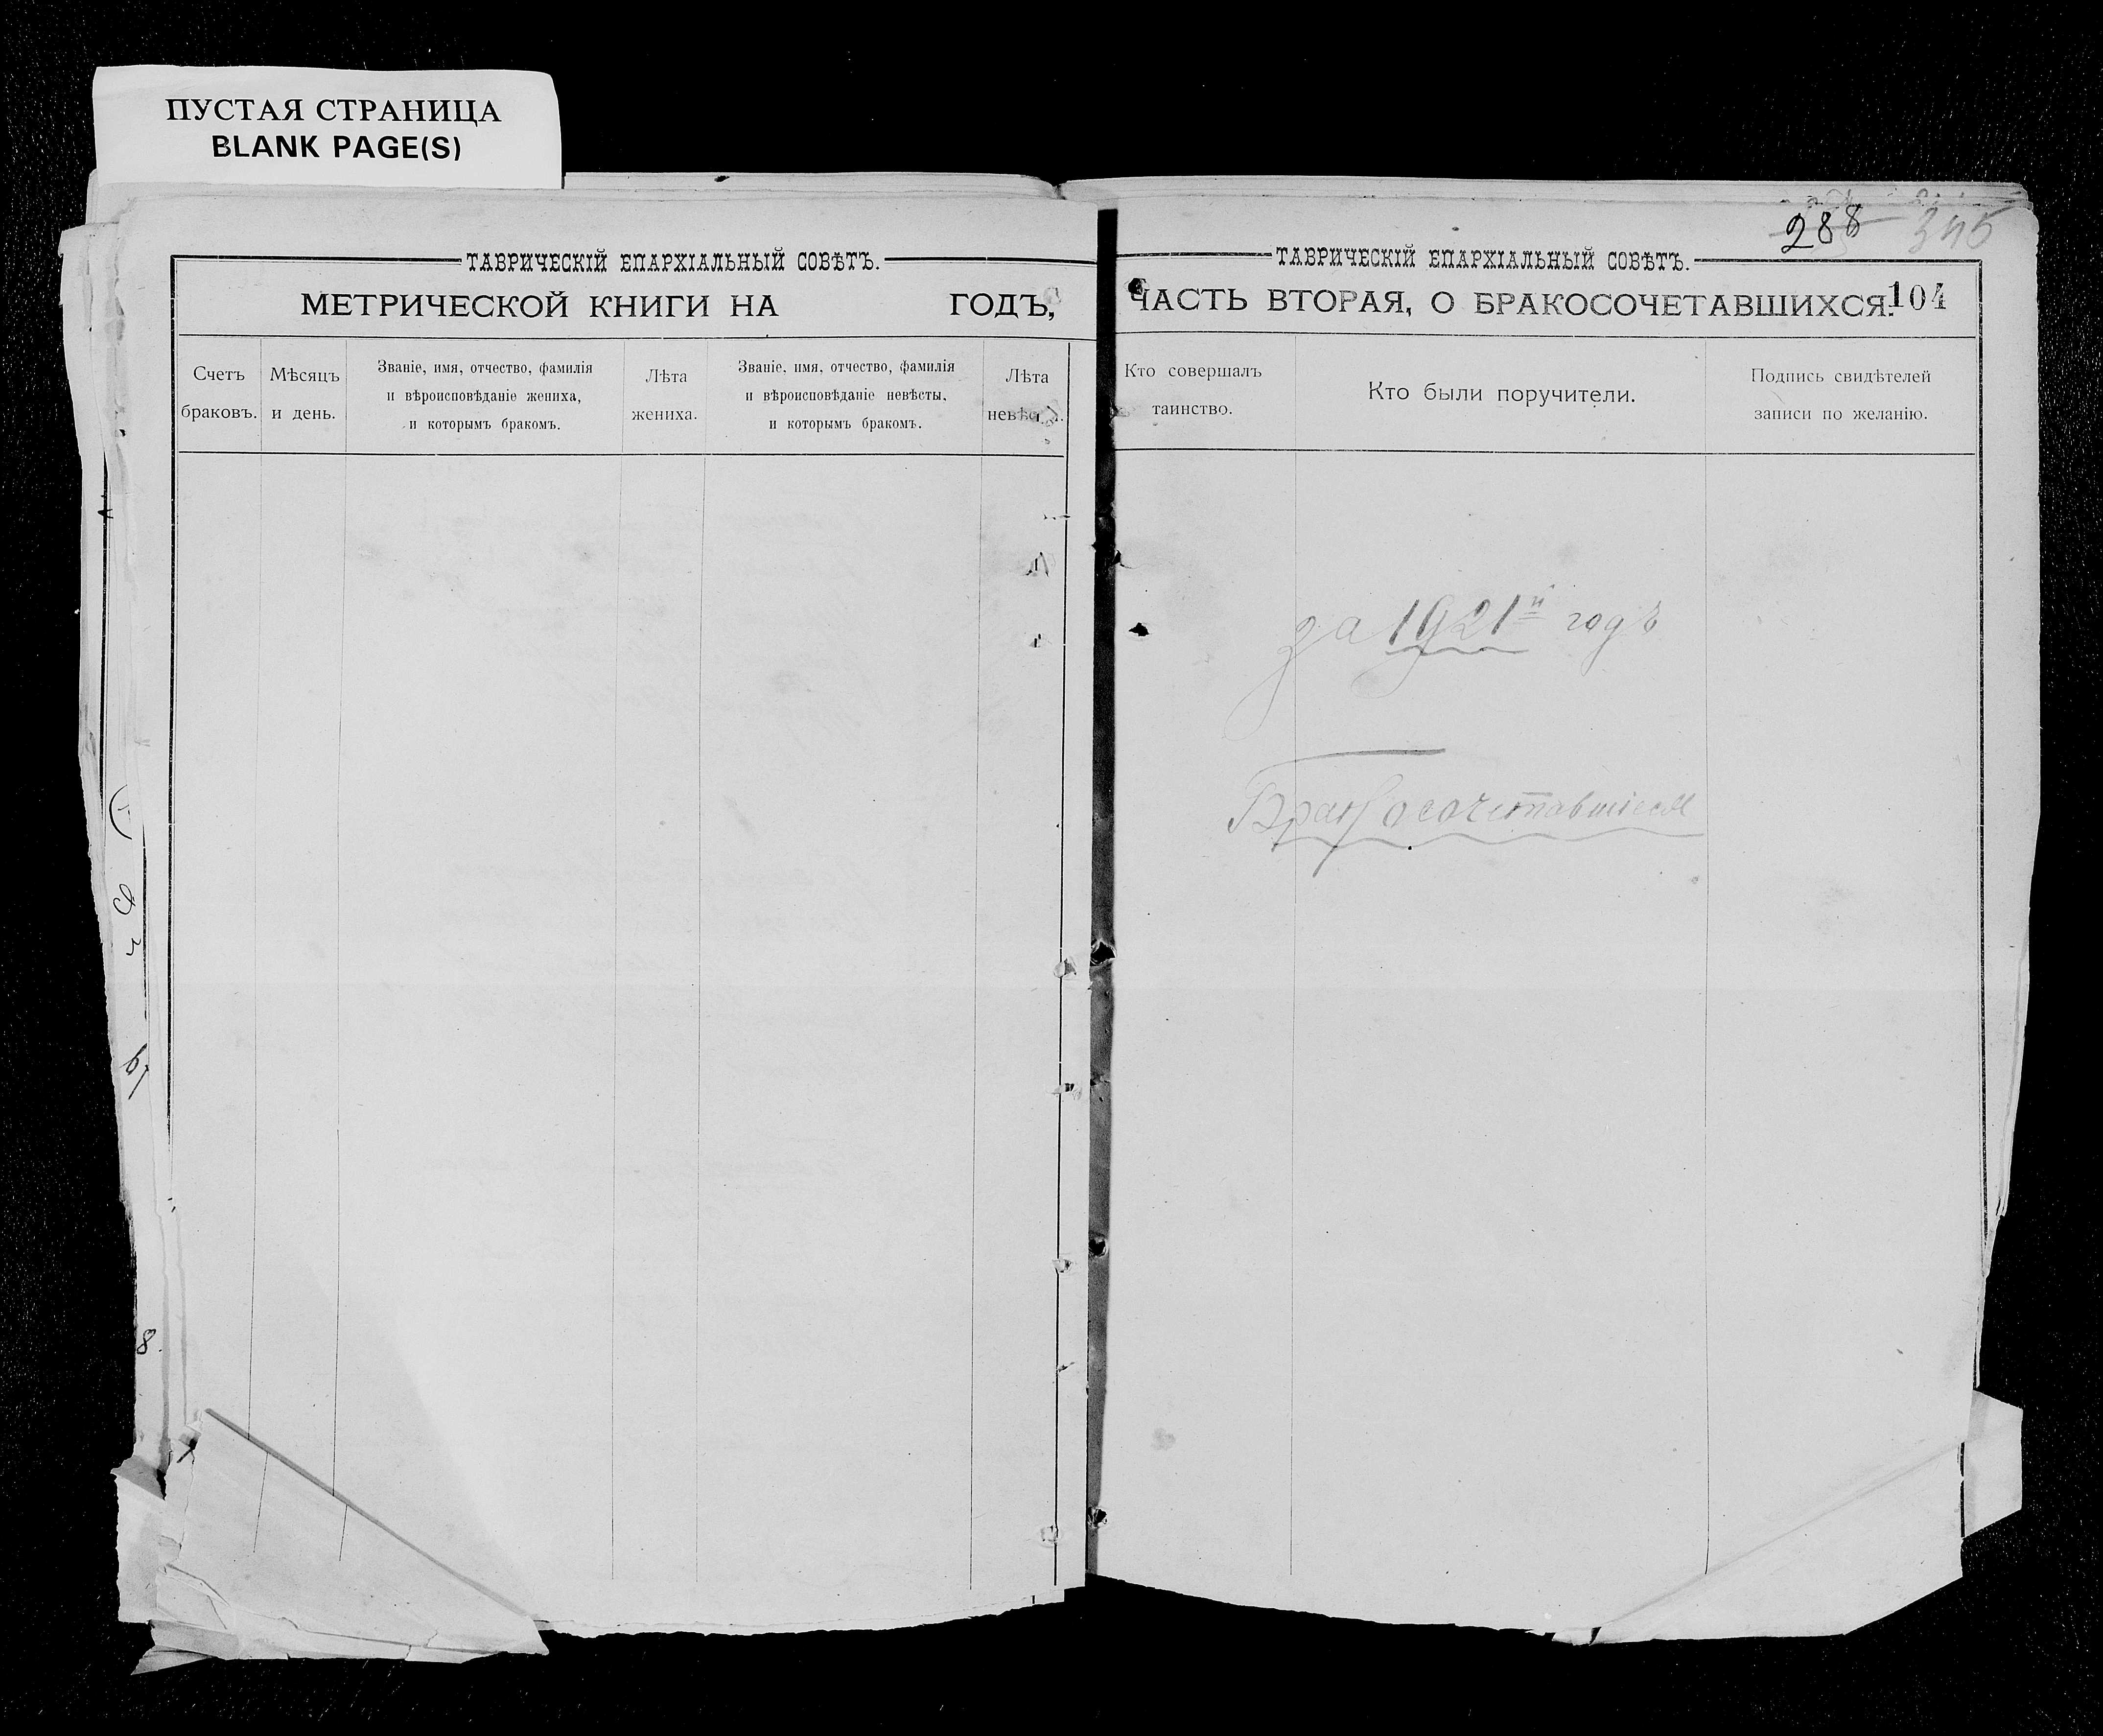 ПУСТАЯ СТРАНИЦА
BLANK PAGE(S)
ТАВРИЧЕСКІЙ ЕПАРХІАЛЬНЫЙ СОВѢТЪ.
МЕТРИЧЕСКОЙ КНИГИ НА ГОДЪ,
Счетъ
браковъ.
Мѣсяцъ
и день.
Званіе, имя, отчество, фамилія
и вѣроисповѣданіе жениха,
и которымъ бракомъ.
Лѣта
жениха.
Званіе, имя, отчество, фамилія
и вѣроисповѣданіе невѣсты,
и которымъ бракомъ.
Лѣта
288 345
ТАВРИЧЕСКІЙ ЕПАРХІАЛЬНЫЙ СОВѢТЪ.
ЧАСТЬ ВТОРАЯ, О БРАКОСОЧЕТАВШИХСЯ. 104
Кто совершалъ
таинство.
Кто были поручители.
Подпись свидѣтелей
записи по желанію.
за 1921й годъ
Бракосочетавшіеся
8